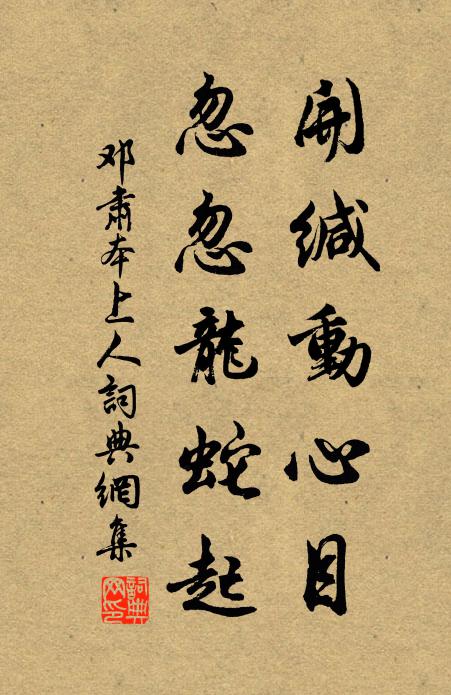 開緘動心目
忽忽龍蛇起
邓肅本上人詞典網集
詞典网印